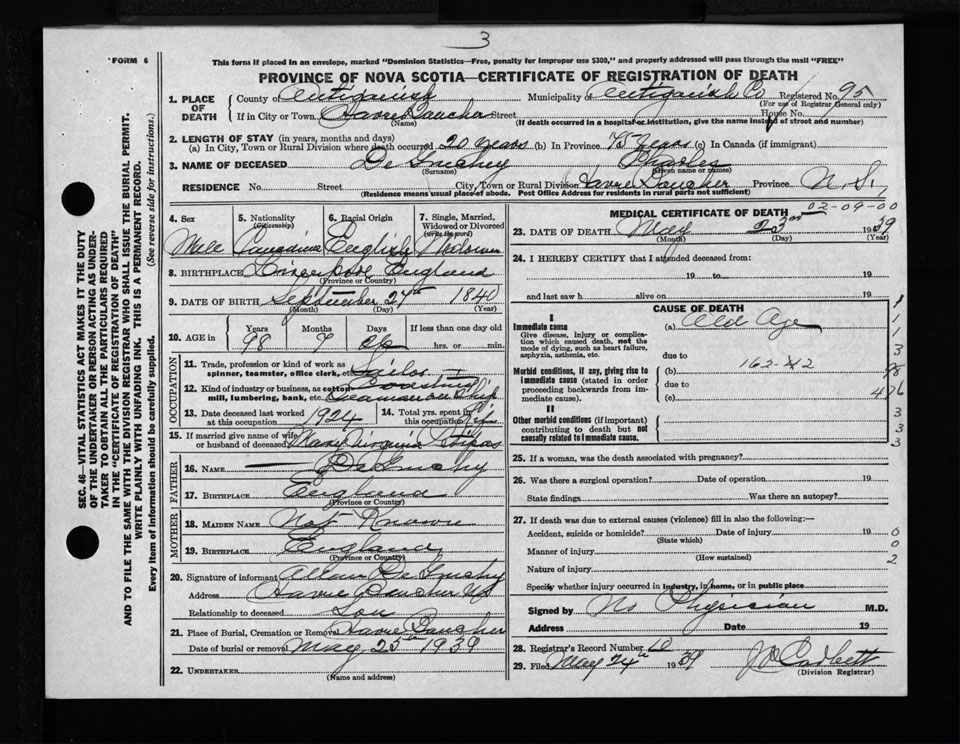 3
FORM 6
This form if placed in an envelope, marked "Dominion Statistics—Free, penalty for improper use $300," and properly addressed will pass through the mail "FREE"
PROVINCE OF NOVA SCOTIA—CERTIFICATE OF REGISTRATION OF DEATH
1. PLACE OF DEATH County of Antigonish Municipality of Antigonish Co Registered No. 95
(For use of Registrar General only)
If in City or Town Havre Boucher Street House No.
(Name) (If death occurred in a hospital or institution, give the name instead of street and number)
2. LENGTH OF STAY (in years, months and days)
(a) In City, Town or Rural Division where death occurred 20 years (b) In Province 75 years (c) In Canada (if immigrant)
3. NAME OF DECEASED Charles
(Surname) (Given name or names)
RESIDENCE No. Street City, Town or Rural Division Havre Boucher Province N.S.
(Residence means usual place of abode. Post Office Address for rural parts not sufficient)
4. Sex 5. Nationality (Citizenship) 6. Racial Origin 7. Single, Married, Widowed or Divorced (write the word)
Male Canadian English Widower
8. BIRTHPLACE England
(Province or Country)
9. DATE OF BIRTH September 27th 1840
(Month) (Day) (Year)
10. AGE in Years Months Days If less than one day old
98 7 hrs. or min.
OCCUPATION
11. Trade, profession or kind of work as spinner, teamster, office clerk, etc. Sailor
12. Kind of industry or business, as cotton mill, lumbering, bank, etc. Coasting
Seaman on Ship
13. Date deceased last worked at this occupation 1924 14. Total yrs. spent in this occupation
15. If married give name of wife or husband of deceased Mary Virginia
FATHER
16. NAME
17. BIRTHPLACE England
(Province or Country)
MOTHER
18. MAIDEN NAME Not Known
19. BIRTHPLACE England
(Province or Country)
20. Signature of informant
Address Havre Boucher NS
Relationship to deceased Son
21. Place of Burial, Cremation or Removal Havre Boucher
Date of burial or removal May 25th 1939
22. UNDERTAKER
(Name and address)
MEDICAL CERTIFICATE OF DEATH
02-09-00
23. DATE OF DEATH May 23rd 1939
(Month) (Day) (Year)
24. I HEREBY CERTIFY that I attended deceased from:
19 to 19
and last saw h alive on 19
CAUSE OF DEATH
I
Immediate cause (a) Old Age
Give disease, injury or complication which caused death, not the mode of dying, such as heart failure, asphyxia, asthenia, etc.
due to
Morbid conditions, if any, giving rise to immediate cause (stated in order proceeding backwards from immediate cause).
(b) 162-
due to
(c)
II
Other morbid conditions (if important) contributing to death but not causally related to immediate cause.
1
1
1
3
98
476
3
3
3
25. If a woman, was the death associated with pregnancy?
26. Was there a surgical operation? Date of operation 19
State findings Was there an autopsy?
27. If death was due to external causes (violence) fill in also the following:—
Accident, suicide or homicide? Date of injury 19
(State which)
Manner of injury
(How sustained)
Nature of injury
Specify whether injury occurred in industry, in home, or in public place
0
0
2
Signed by No Physician M.D.
Address Date 19
28. Registrar's Record Number 10
29. Filed May 24th 1939 Corbett
(Division Registrar)
SEC. 46—VITAL STATISTICS ACT MAKES IT THE DUTY
OF THE UNDERTAKER OR PERSON ACTING AS UNDER-
TAKER TO OBTAIN ALL THE PARTICULARS REQUIRED
IN THE "CERTIFICATE OF REGISTRATION OF DEATH"
AND TO FILE THE SAME WITH THE DIVISION REGISTRAR WHO SHALL ISSUE THE BURIAL PERMIT.
WRITE PLAINLY WITH UNFADING INK. THIS IS A PERMANENT RECORD.
Every item of information should be carefully supplied. (See reverse side for instructions.)